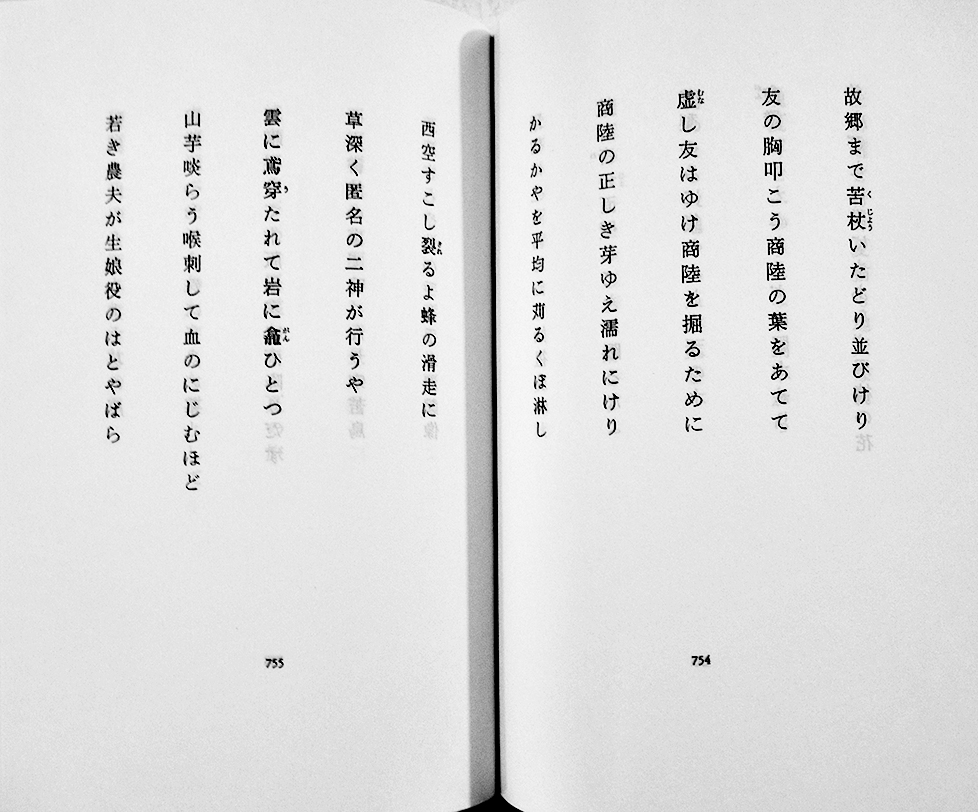 故郷まで苦杖いたどり並びけり
友の胸叩こう商陸の葉をあてて
虚し友はゆけ商陸を掘るために
商陸の正しき芽ゆえ濡れにけり
かるかやを平均に刈るくぼ淋し
754
西空すこし裂るよ蜂の滑走に
草深く匿名の二神が行うや
雲に鳶穿たれて岩に龕ひとつ
山芋啖らう喉刺して血のにじむほど
若き農夫が生娘役のはとやばら
755